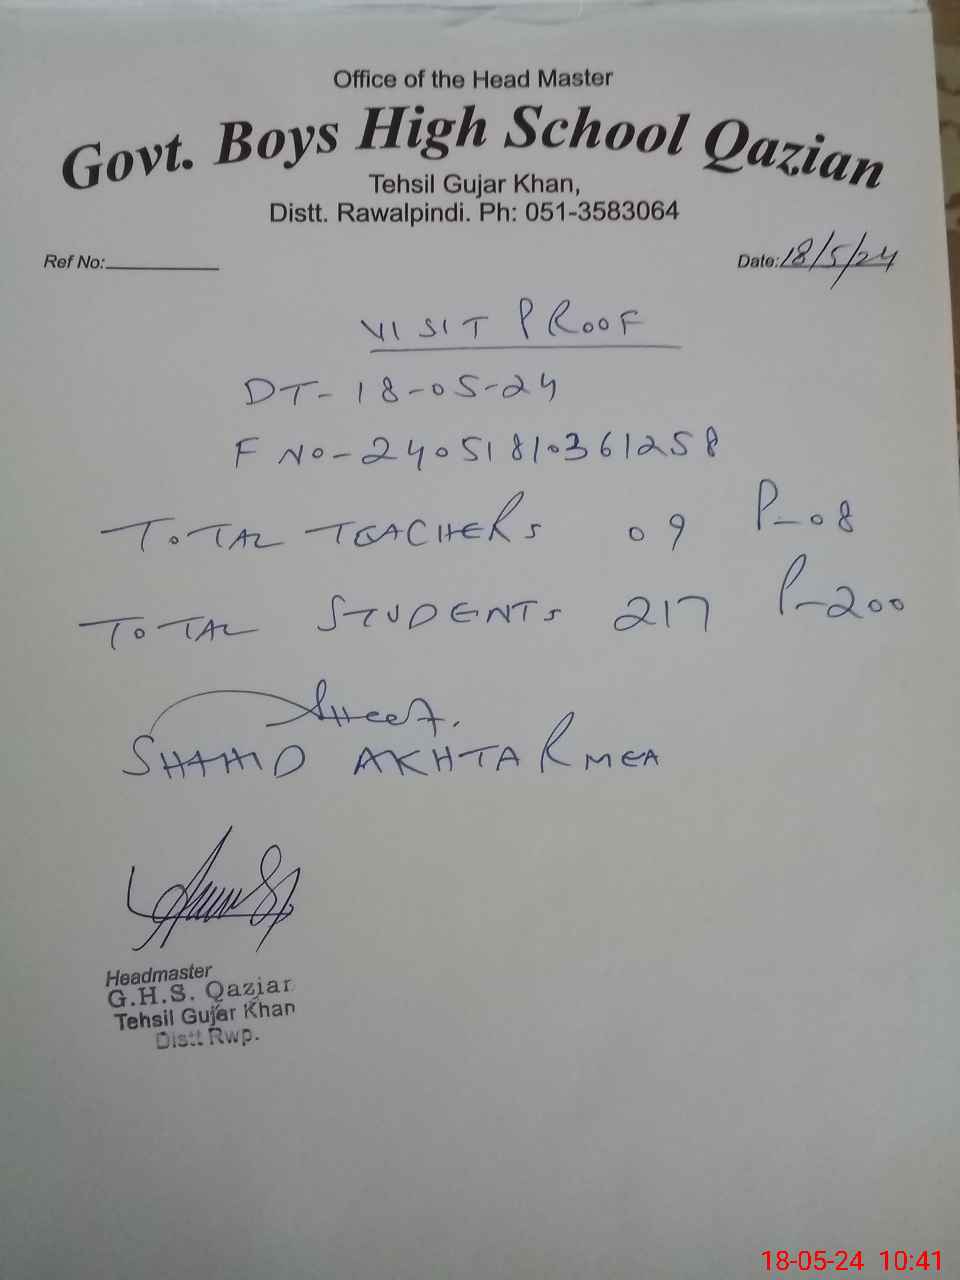 Office of the Head Master
Govt. Boys High School Qazian
Tehsil Gujar Khan,
Distt. Rawalpindi. Ph: 051-3583064
Ref No:
Date: 18/5/24
VISIT PROOF
DT- 18-05-24
F NO- 24051810361258
TOTAL TEACHERS 09 P-08
TOTAL STUDENTS 217 P-200
SHAHID AKHTAR MEA
Headmaster
G.H.S. Qazian
Tehsil Gujar Khan
Distt Rwp.
18-05-24 10:41